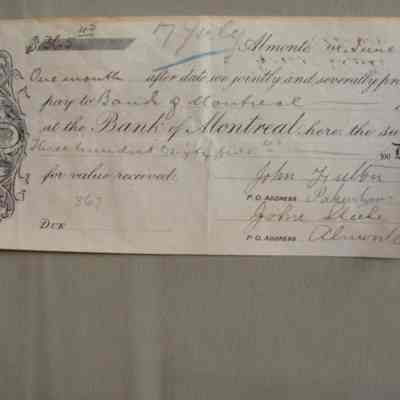 $365 00 17 July Almonte, June
One month after date we jointly and severally pro
pay to Bank of Montreal
at the Bank of Montreal, here, the su
Three hundred sixty five 00 100 D
for value received.
John Fulton
367 P.O. ADDRESS Pakenham
John Steele
DUE P.O. ADDRESS Almonte